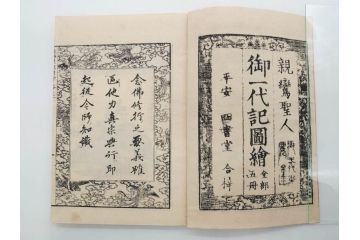 親鸞聖人
御一代記圖繪
全部
五冊
平安
四書堂
合梓
念佛修行之要義雖
區他力真宗興行即
起従今師知識